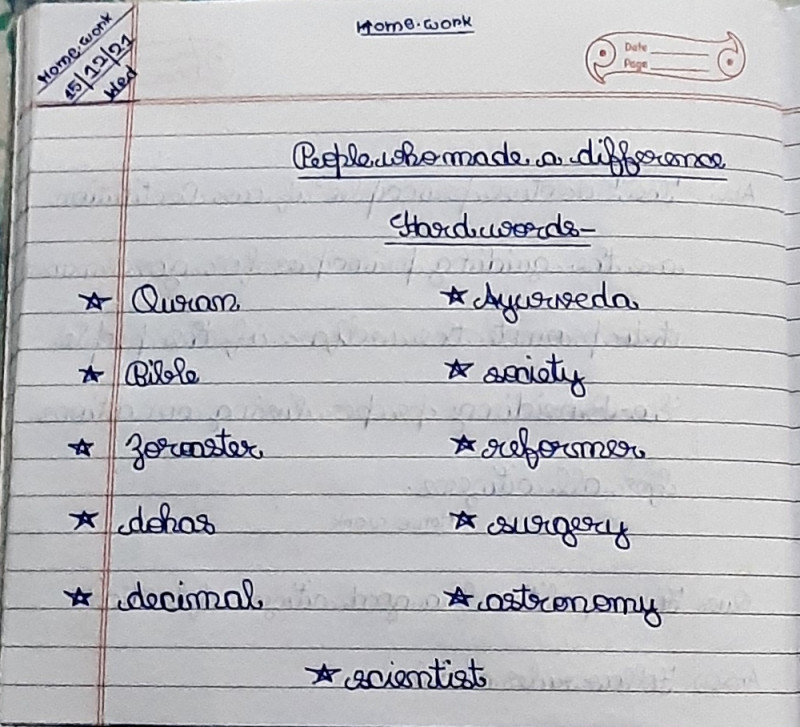 Home.work
Home.work
15/12/21
Wed
Date
Page
People who made a difference
Hard words-
☆ Quran ☆ Ayurveda
☆ Bible ☆ society
☆ Zoroaster ☆ reformer
☆ dohas ☆ surgery
☆ decimal ☆ astronomy
☆ scientist